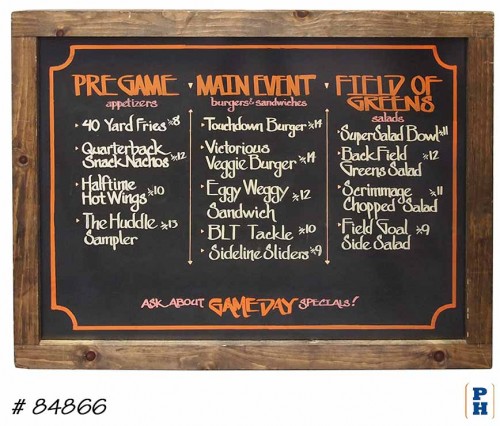 PREGAME
appetizers
40 Yard Fries $8
Quarterback
Snack Nachos $12
Halftime
Hot Wings $10
The Huddle $13
Sampler
MAIN EVENT
burgers & sandwiches
Touchdown Burger $14
Victorious
Veggie Burger $14
Eggy Weggy $12
Sandwich
BLT Tackle $10
Sideline Sliders $9
FIELD OF
GREENS
salads
Super Salad Bowl $11
Back Field $12
Greens Salad
Scrimmage $11
Chopped Salad
Field Goal $9
Side Salad
ASK ABOUT GAMEDAY SPECIALS!
# 84866
PH